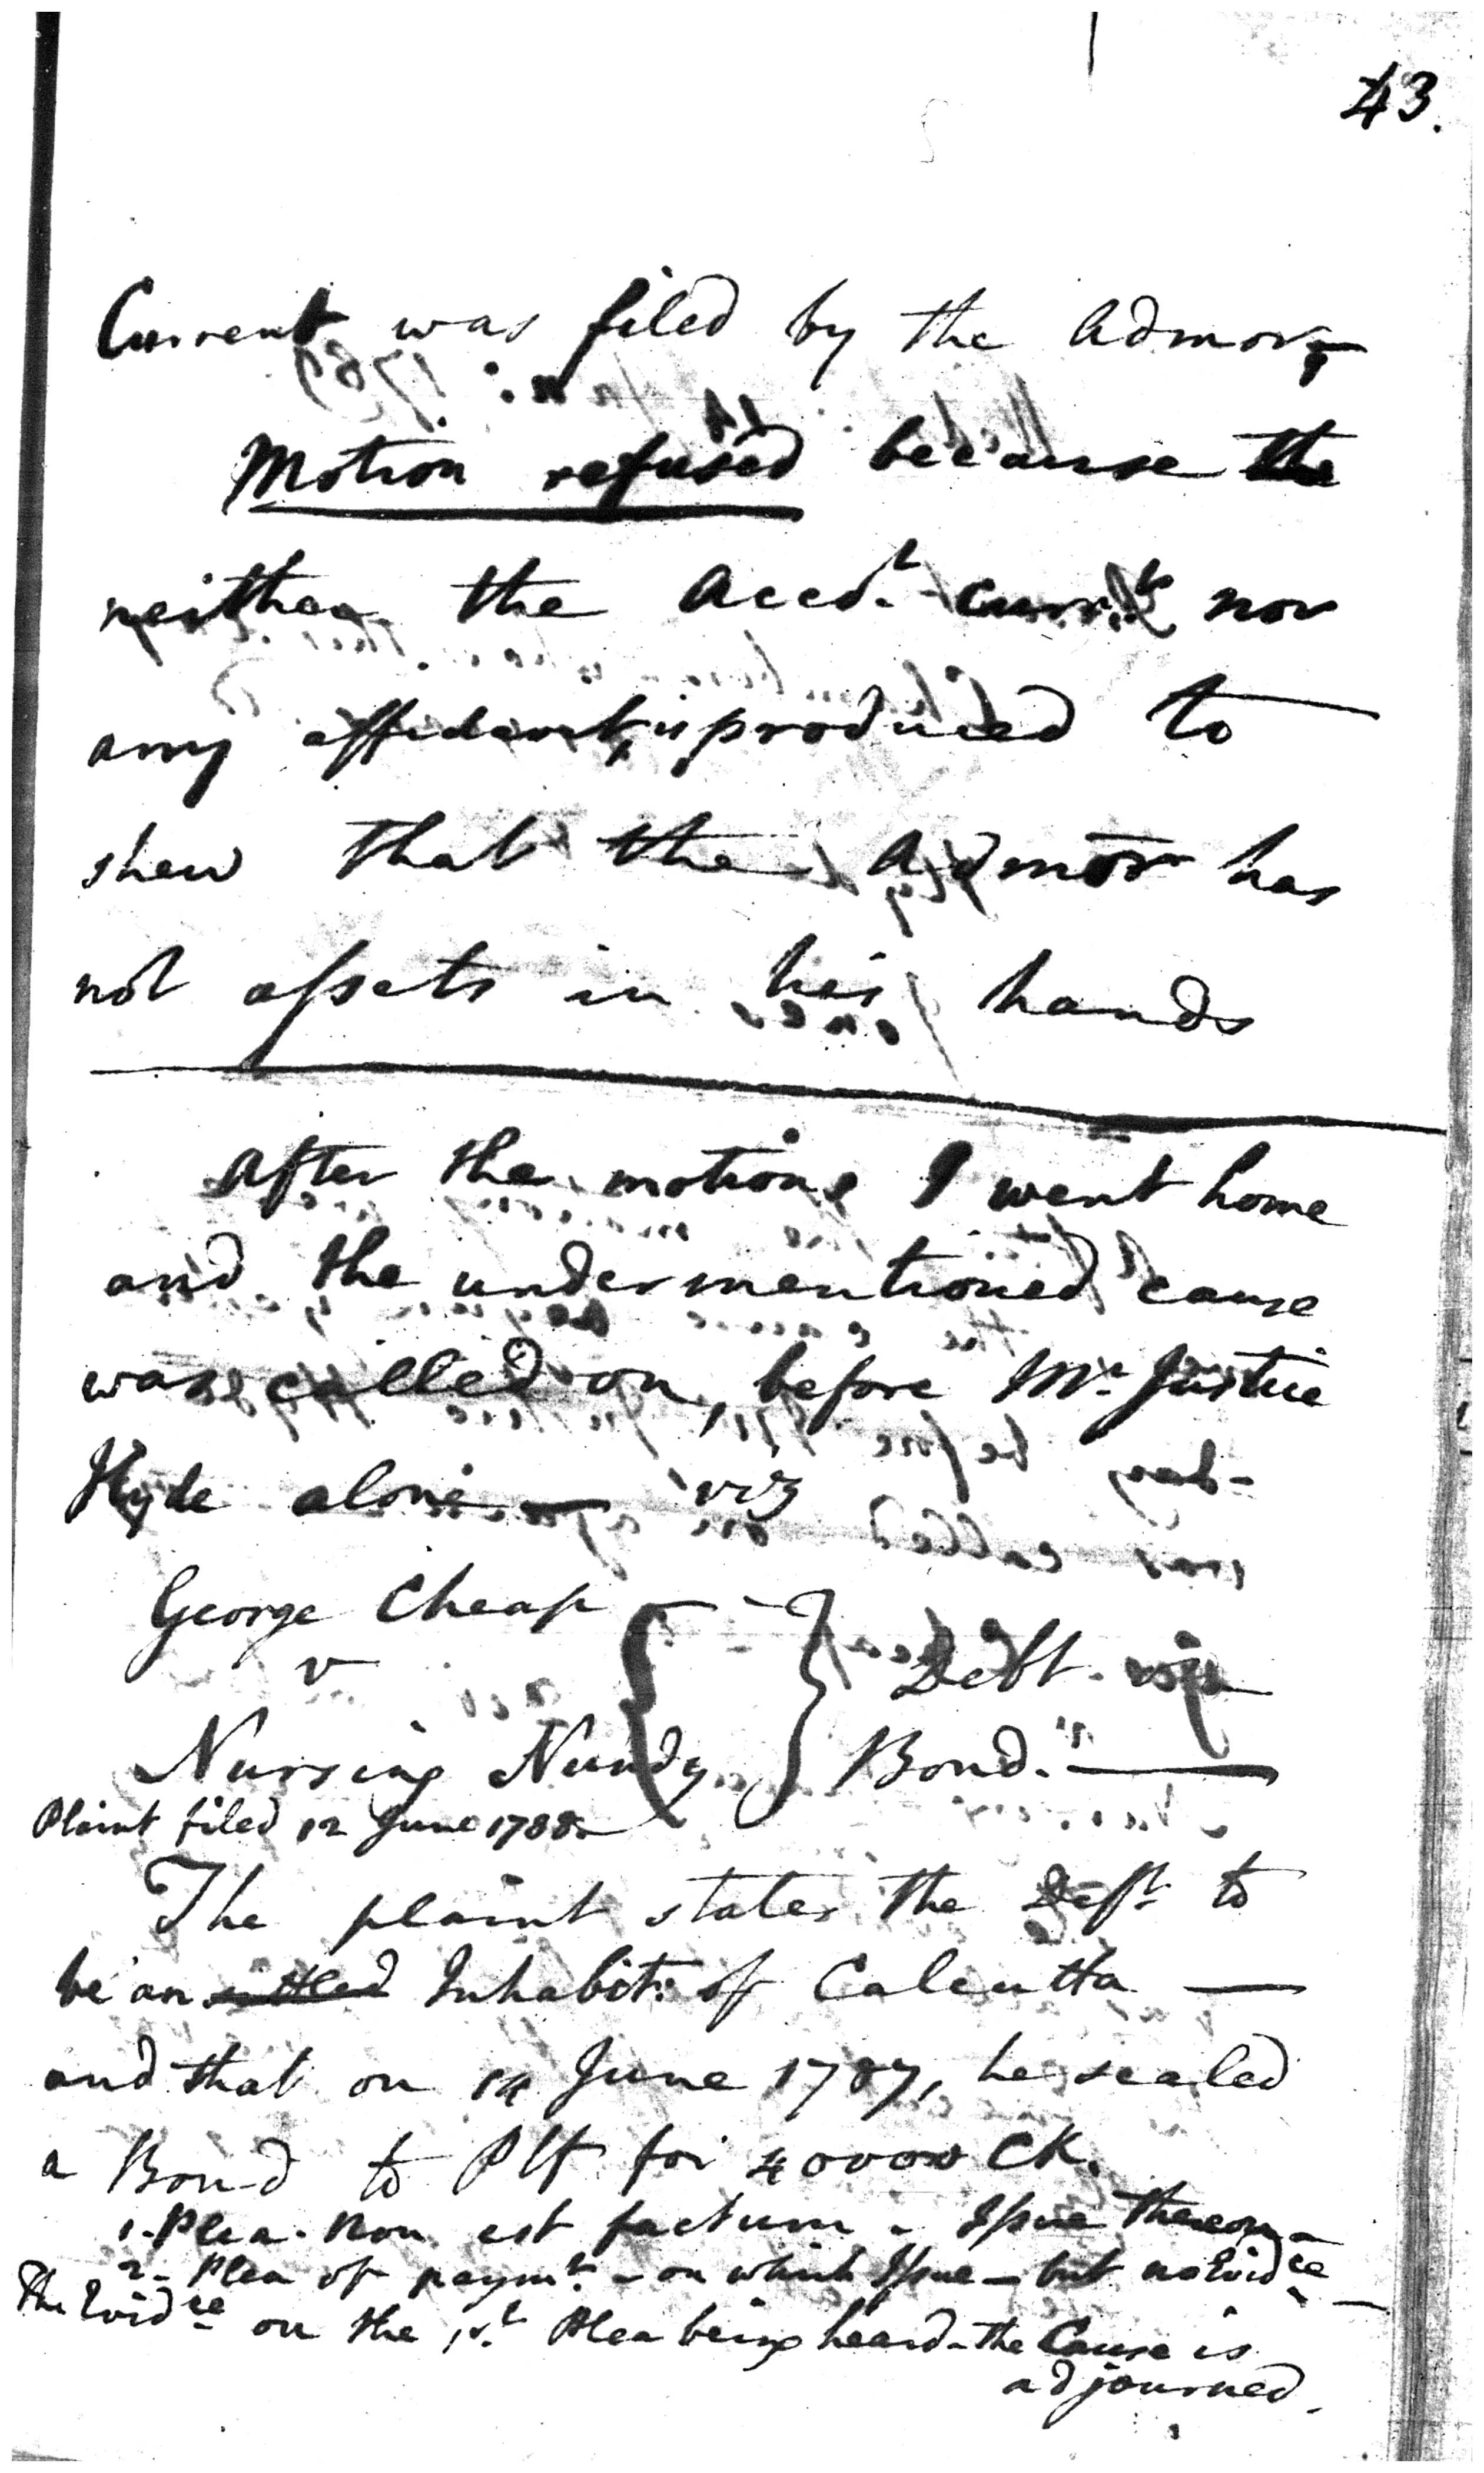 43.
Current was filed by the Admor
Motion refused because the
neither the Acct. currt. nor
any affidavit is produced to
shew that the Admor has
not assets in his hands
After the motions I went home
and the undermentioned cause
was called on, before Mr. Justice
Hyde alone — viz
George Cheap
v
Debt.
Nursing Nundy } Bond. —
Plaint filed 12 June 1788
The plaint states the Deft to
be an settled Inhabit: of Calcutta —
and that on 14 June 1787, he sealed
a Bond to Plf for 40000 CR.
1. Plea. Non est factum - Issue thereon -
2 - Plea of paymt. - on which Issue - but no Evidce -
The Evidce on the 1st. Plea being heard - the Cause is
adjourned.